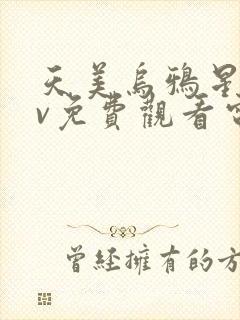 天美烏鴉星
v免費觀看
曾經擁有的方